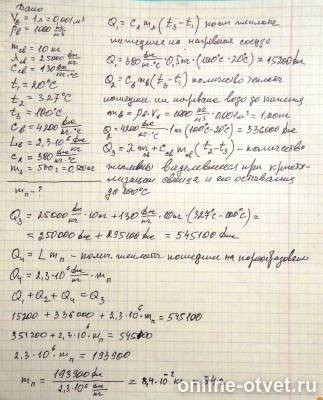 Дано
V_в = 1л = 0,001 м³
ρ_в = 1000 кг/м³
m_св = 10 кг
λ_св = 25000 Дж/кг
C_св = 130 Дж/кг·°C
t₁ = 20°C
t₂ = 327°C
t₃ = 100°C
C_в = 4200 Дж/кг·°C
L_в = 2,3·10⁶ Дж/кг
C_л = 380 Дж/кг·°C
m_л = 500г = 0,500кг
m_п - ?
Q₁ = C_л m_л (t₃ - t₁) колич теплоты
пошедшее на нагревание сосуда
Q₁ = 380 Дж/кг·°C · 0,5кг · (100°C - 20°C) = 15200 Дж
Q₂ = C_в m_в (t₃ - t₁) количество теплоты
пошедшее на нагрев воды до кипения
m_в = ρ_в V_в = 1000 кг/м³ · 0,001 м³ = 1,00кг
Q₂ = 4200 Дж/кг·°C · 1кг (100°C - 20°C) = 336000 Дж
Q₃ = λ m_св + C_св m_св (t₂ - t₃) - количество
теплоты выделевшееся при кристал-
лизации свинца и его остывании
до 100°C
Q₃ = 25000 Дж/кг · 10кг + 130 Дж/кг·°C · 10кг · (327°C - 100°C) =
= 250000 Дж + 295100 Дж = 545100 Дж
Q₄ = L m_п - колич. теплоты пошедшее на парообразован
Q₄ = 2,3·10⁶ Дж/кг · m_п
Q₁ + Q₂ + Q₄ = Q₃
15200 + 336000 + 2,3·10⁶ · m_п = 545100
351200 + 2,3·10⁶ m_п = 545100
2,3·10⁶ · m_п = 193900
m_п = 193900 Дж / 2,3·10⁶ Дж/кг = 8,4·10⁻² кг = 84г
online-otvet.ru